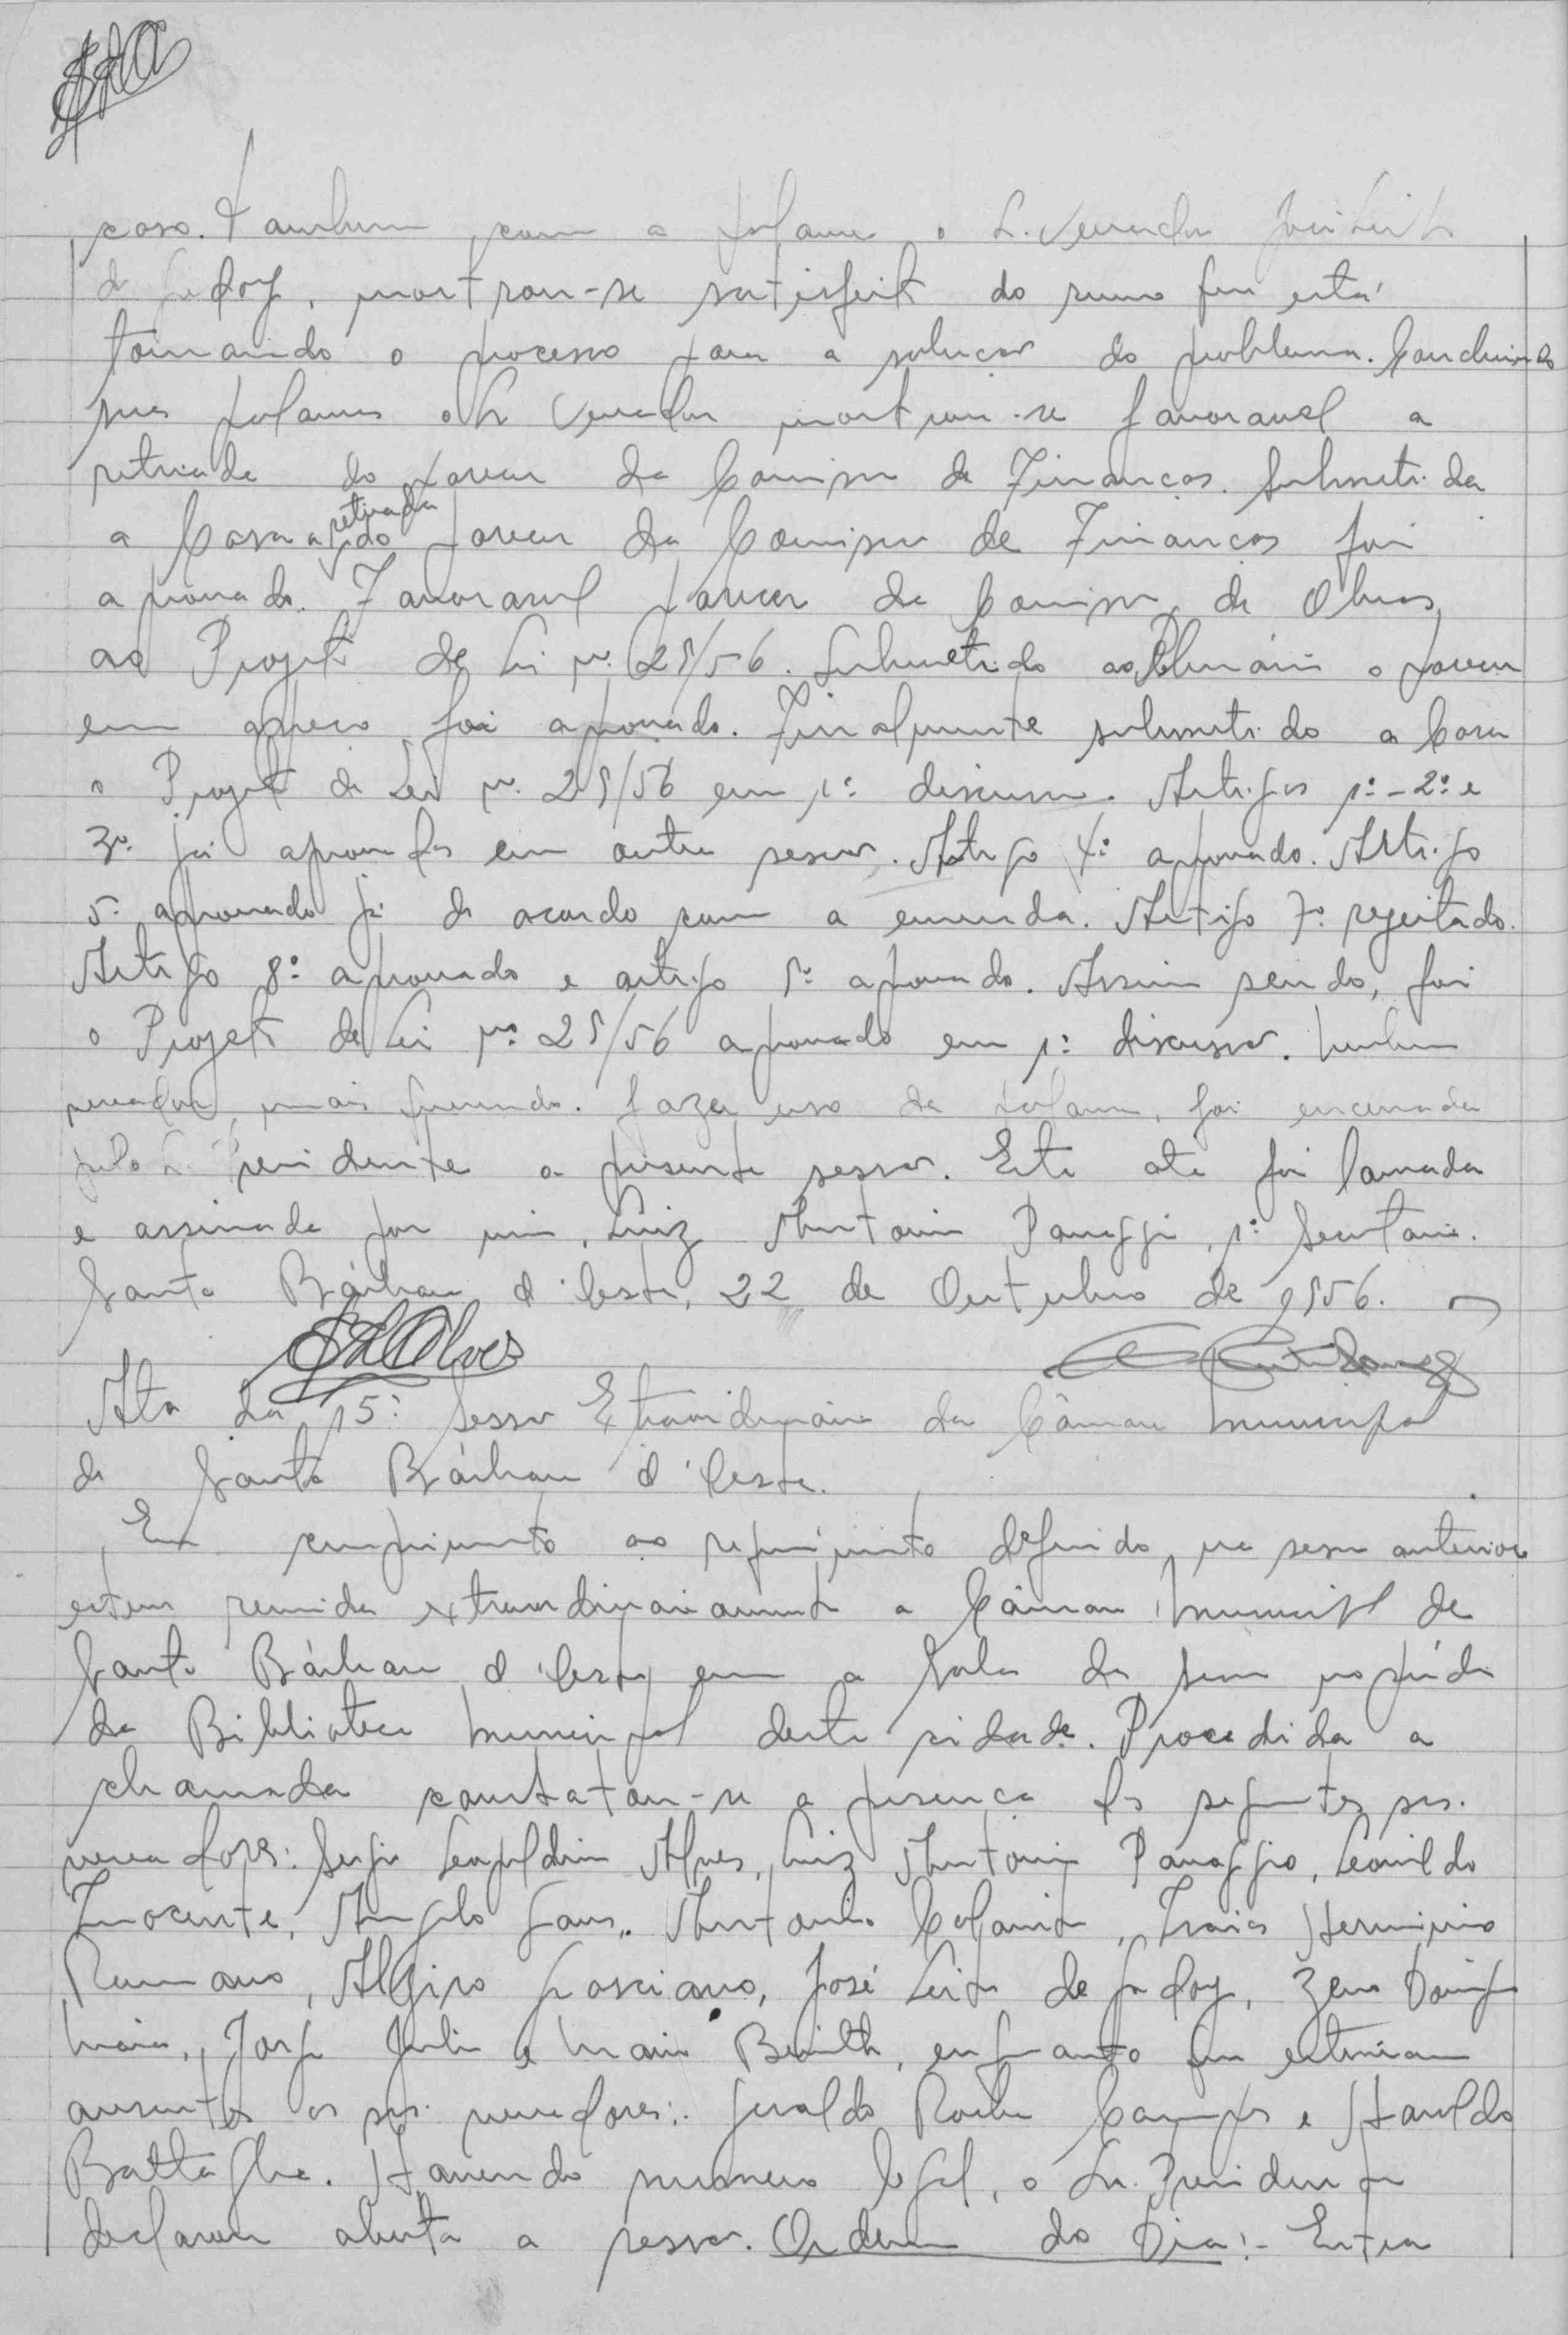 caso. Tambem com a palavra o Sr. Vereador José Leite
de Godoy, mostrou-se satisfeito do rumo que está
tomando o processo para a solução do problema. Concluindo
sua palavra o Sr Vereador mostrou-se favoravel a
retirada do parecer da Comissão de Finanças. Submetida
a Casa a retirada do parecer da Comissão de Finanças foi
aprovada. Favoravel parecer da Comissão de Obras,
ao Projeto de Lei nº 29/56. Submetido ao Plenário o parecer
em apreço foi aprovado. Finalmente submetido a Casa
o Projeto de Lei nº 29/56 em 1ª discussão. Artigos 1º - 2º e
3º já aprovados em outra sessão. Artigo 4º aprovado. Artigo
5º aprovado já de acordo com a emenda. Artigo 7º rejeitado.
Artigo 8º aprovado e artigo 9º aprovado. Assim sendo, foi
o Projeto de Lei nº 29/56 aprovado em 1ª discussão. Nenhum
vereador, mais querendo fazer uso da palavra, foi encerrada
pelo Sr. Presidente a presente sessão. Esta ata foi lavrada
e assinada por mim, Luiz Antonio Panaggio, 1º Secretario.
Santa Bárbara d'Oeste, 22 de Outubro de 1956.
SLAlves
Ata da 15ª Sessão Extraordinária da Câmara Municipal
de Santa Bárbara d'Oeste.
Em cumprimento ao requerimento deferido na sessão anterior
esteve reunida extraordinariamente a Câmara Municipal de
Santa Bárbara d'Oeste, em a sala de sessão no prédio
da Biblioteca Municipal desta cidade. Procedida a
chamada constatou-se a presença dos seguintes srs.
vereadores: Sergio Leopoldino Alves, Luiz Antonio Panaggio, Leonildo
Inocente, Angelo Antonio Isaias Herminio
Romano, Algiro Gasciano, José Leite de Godoy, Zeno Domingos
Maia, Jorge Julio e Mario Benith, enquanto que estiveram
ausentes os srs. vereadores: Geraldo Rocha Campos e Haroldo
Battaglia. Havendo numero legal, o Sr. Presidente
declarou aberta a sessão. Ordem do Dia:- Entra